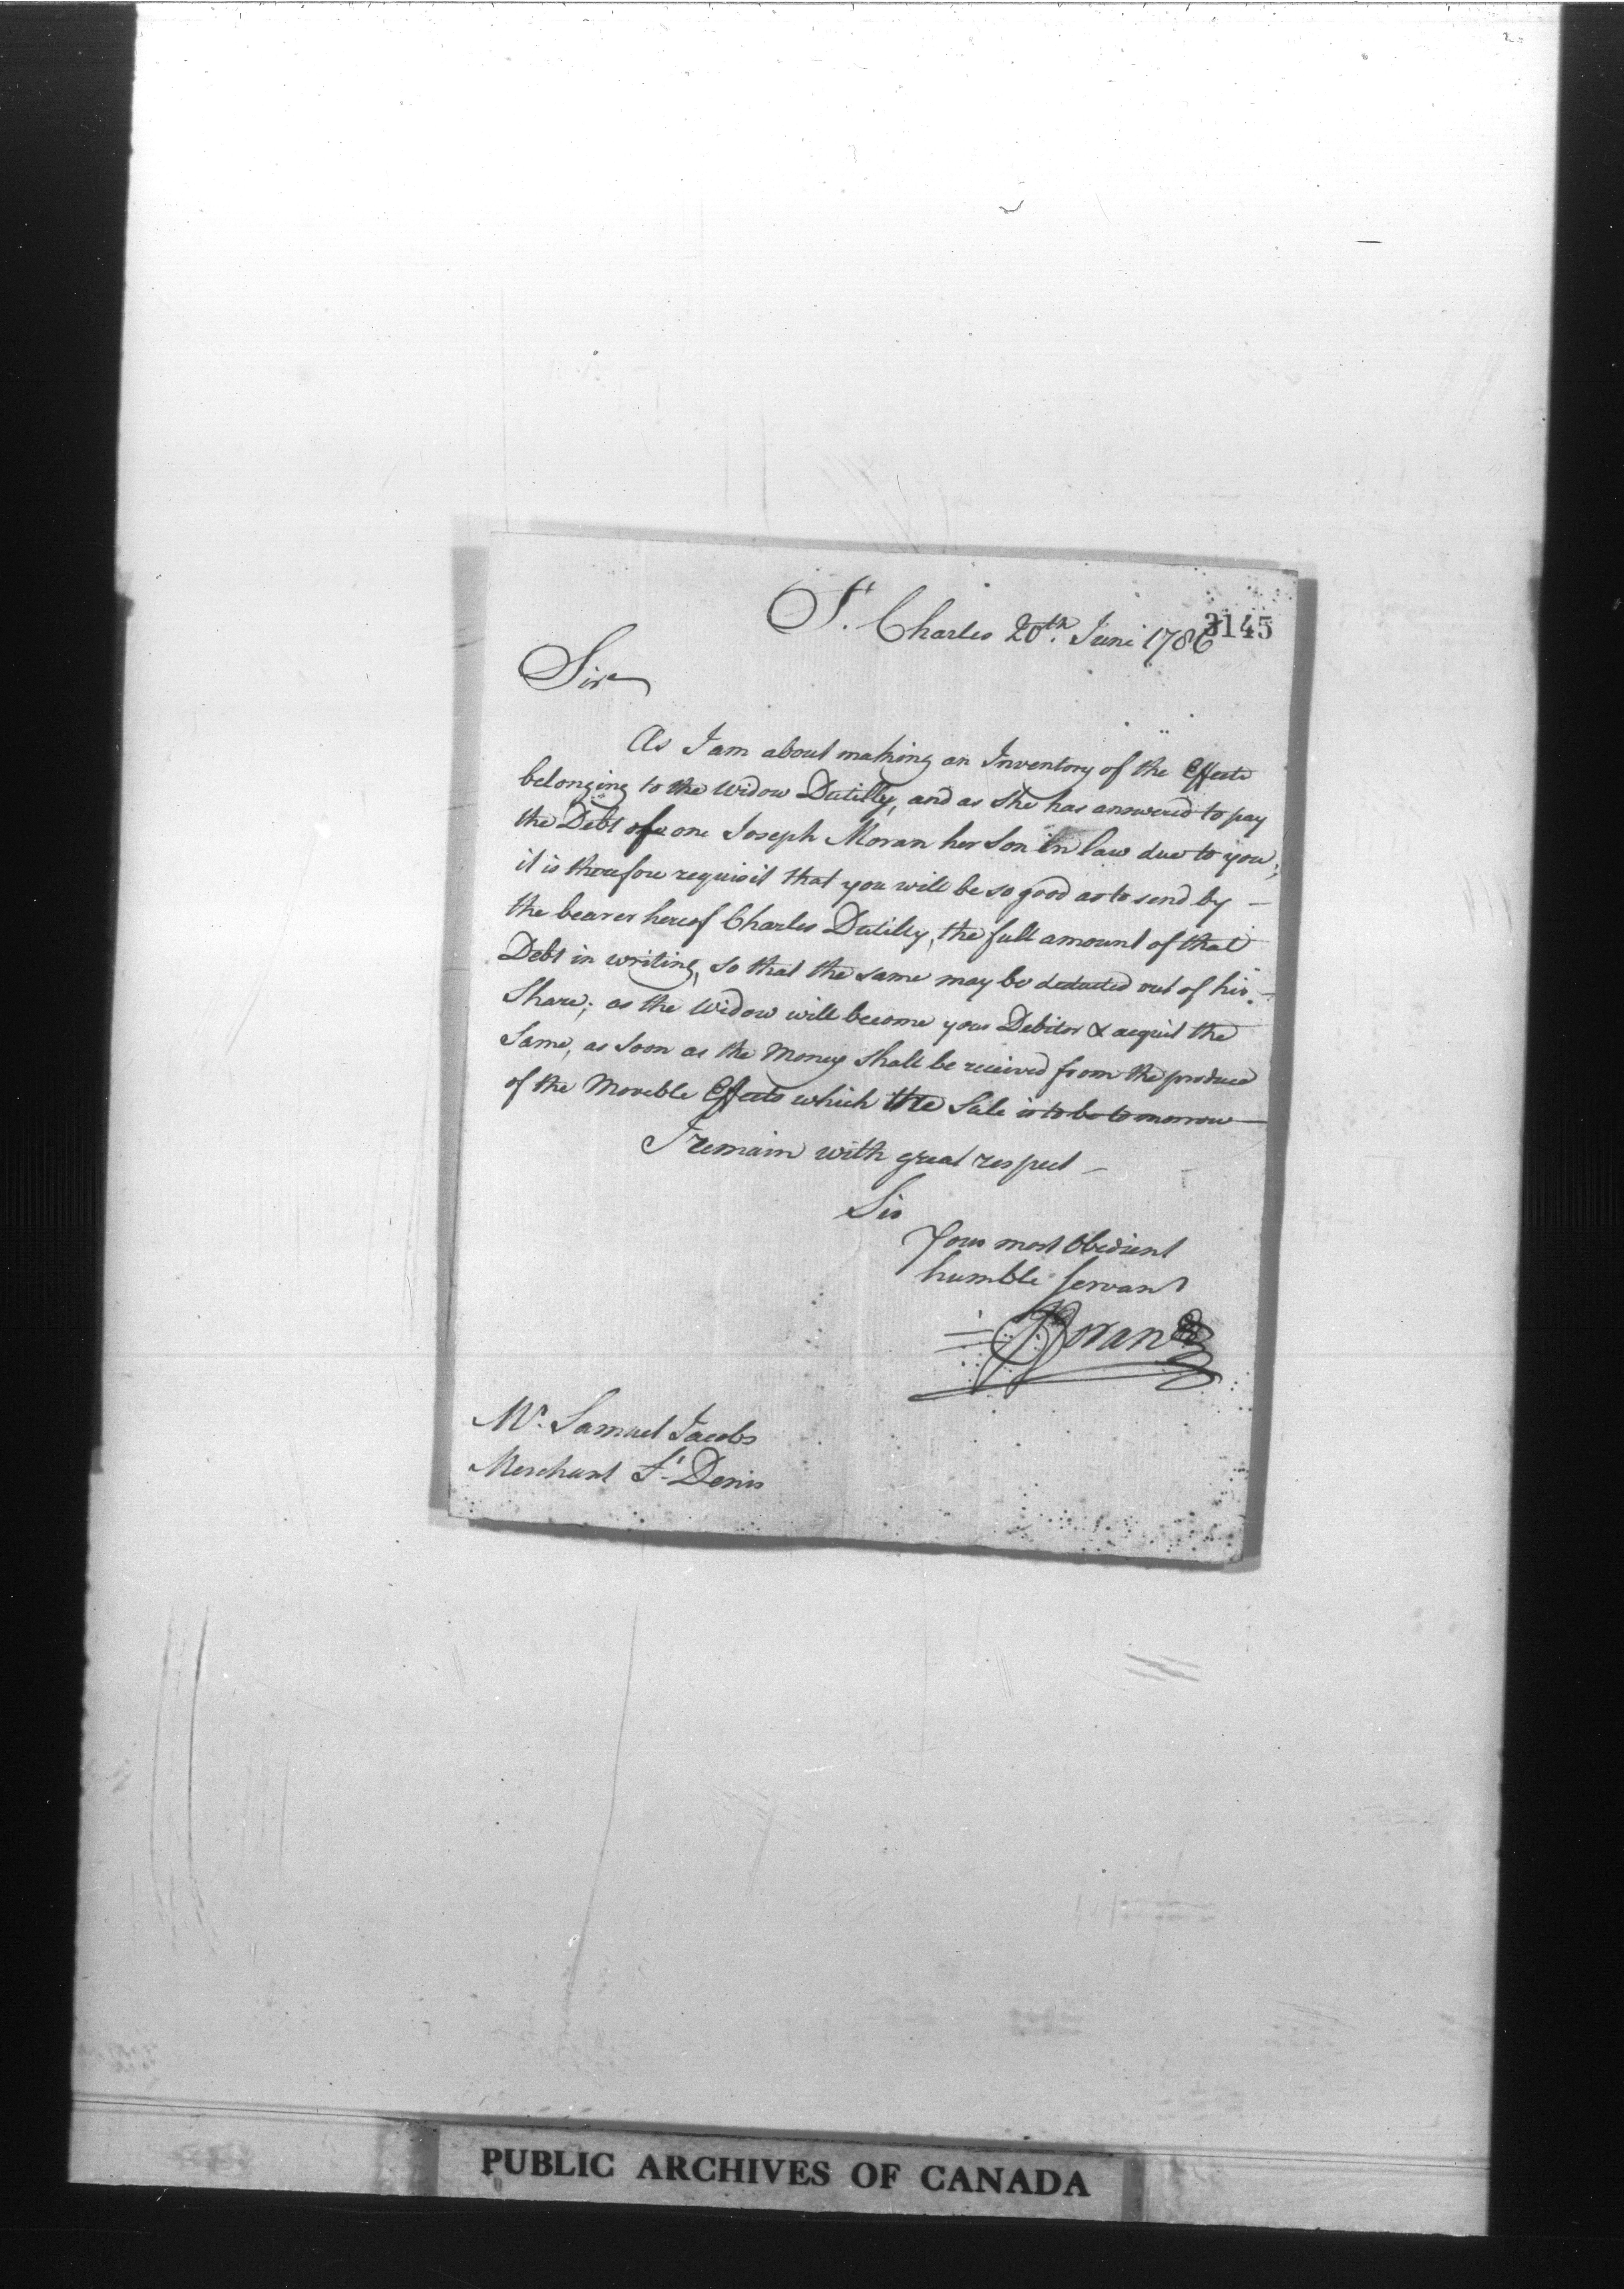 St. Charles 20th. Juni 1786
3145
Sir
As I am about making an Inventory of the Effects
belonging to the Widow Dutilly, and as She has answered to pay
the Debt of one Joseph Moran her Son in law due to you,
it is therefore requisit that you will be so good as to send by —
the bearer hereof Charles Dutilly, the full amount of that
Debt in writing, so that the same may be deducted out of his
Share; as the Widow will become your Debitor & acquit the
Same, as Soon as the Money shall be received from the produce
of the Moveble Effects which the Sale is to be tomorrow —
I remain with great respect —
Sir
Your most Obedient
humble Servant
Mr. Samuel Jacobs
Merchant St. Denis
PUBLIC ARCHIVES OF CANADA